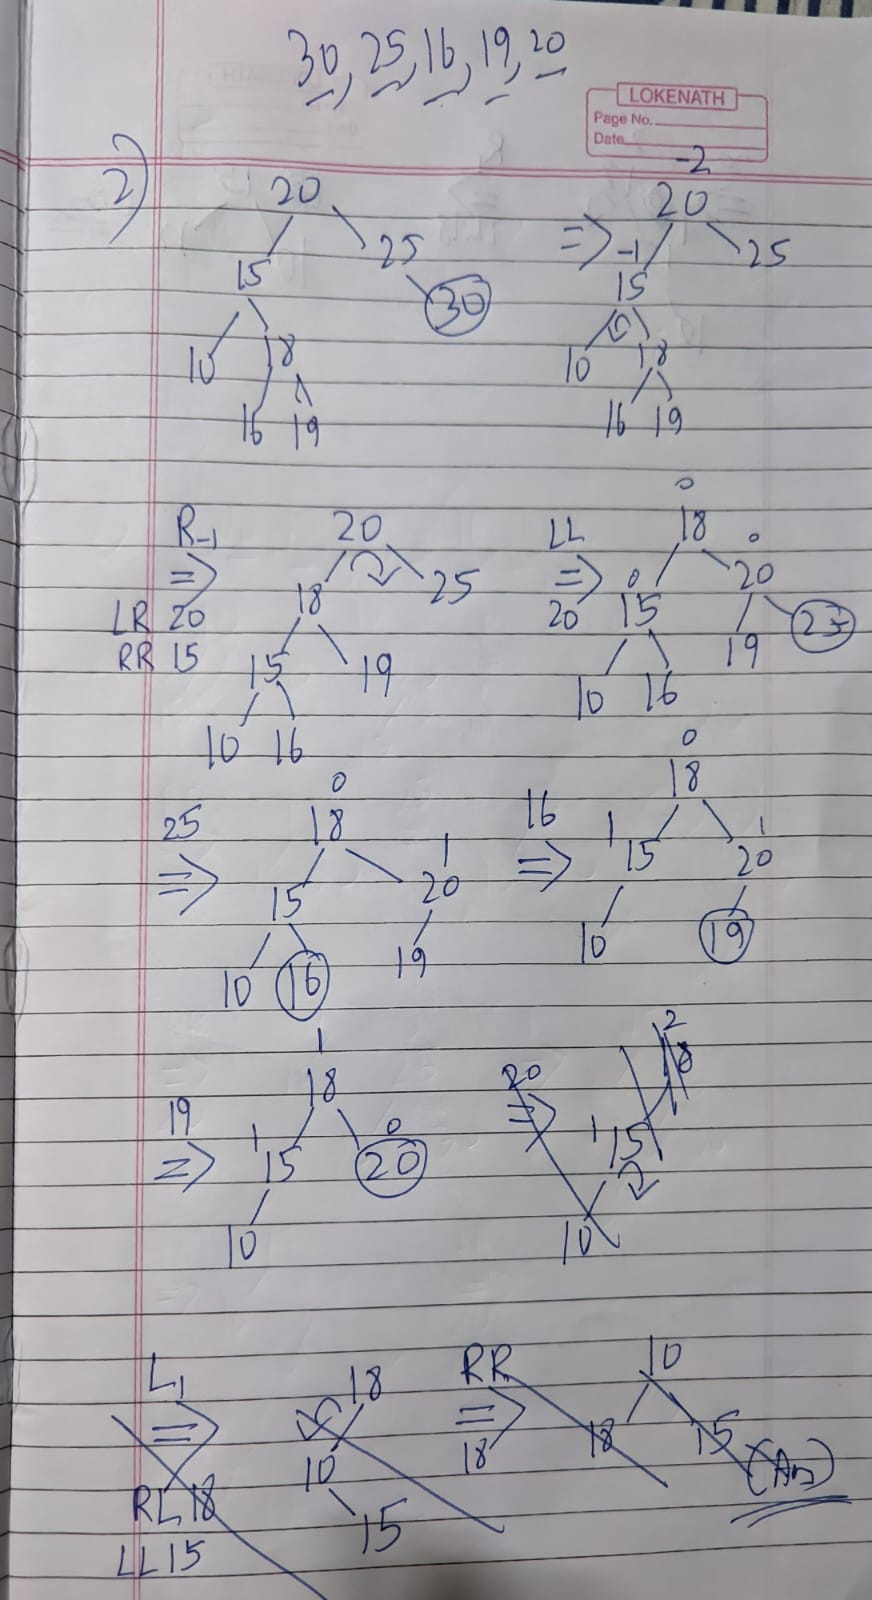 30, 25, 16, 19, 20
LOKENATH
Page No.
Date
2)
20
15 25
30
10 18
16 19
-2
20
⇒ -1
15 25
10 18
16 19
R-1
⇒
LR 20
RR 15
20
18 25
15 19
10 16
LL
⇒
20
0
18
0 0
15 20
10 16 19 25
25
⇒
0
18
1
15 20
10 16 19
16
⇒
0
18
1 1
15 20
10 19
19
⇒
1
18
1 0
15 20
10
20
⇒
2
18
1
15
10
L1
⇒
RL 18
LL 15
18
10
15
RR
⇒
18
10
18 15
(Ans)